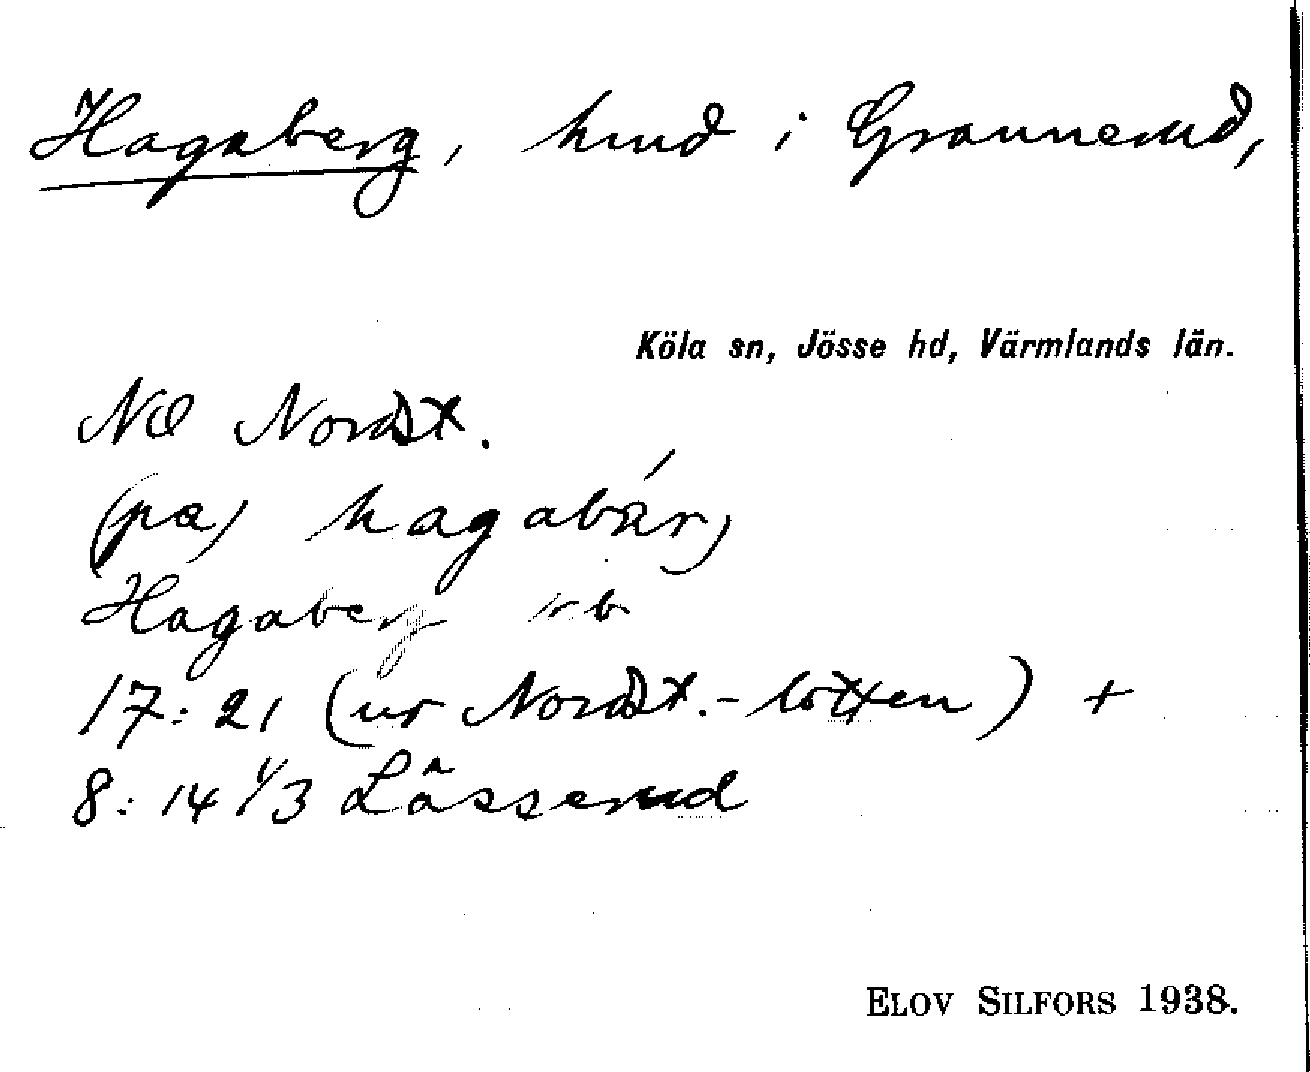 Hagaberg, hmd i Grannerud,
Köla sn, Jösse hd, Värmlands län.
NÖ Nordst.
(pa) hagabär,
Hagaberg jrb
17:21 (ur Nordst.-lotten) +
8:14 1/3 Lässerud
ELOV SILFORS 1938.